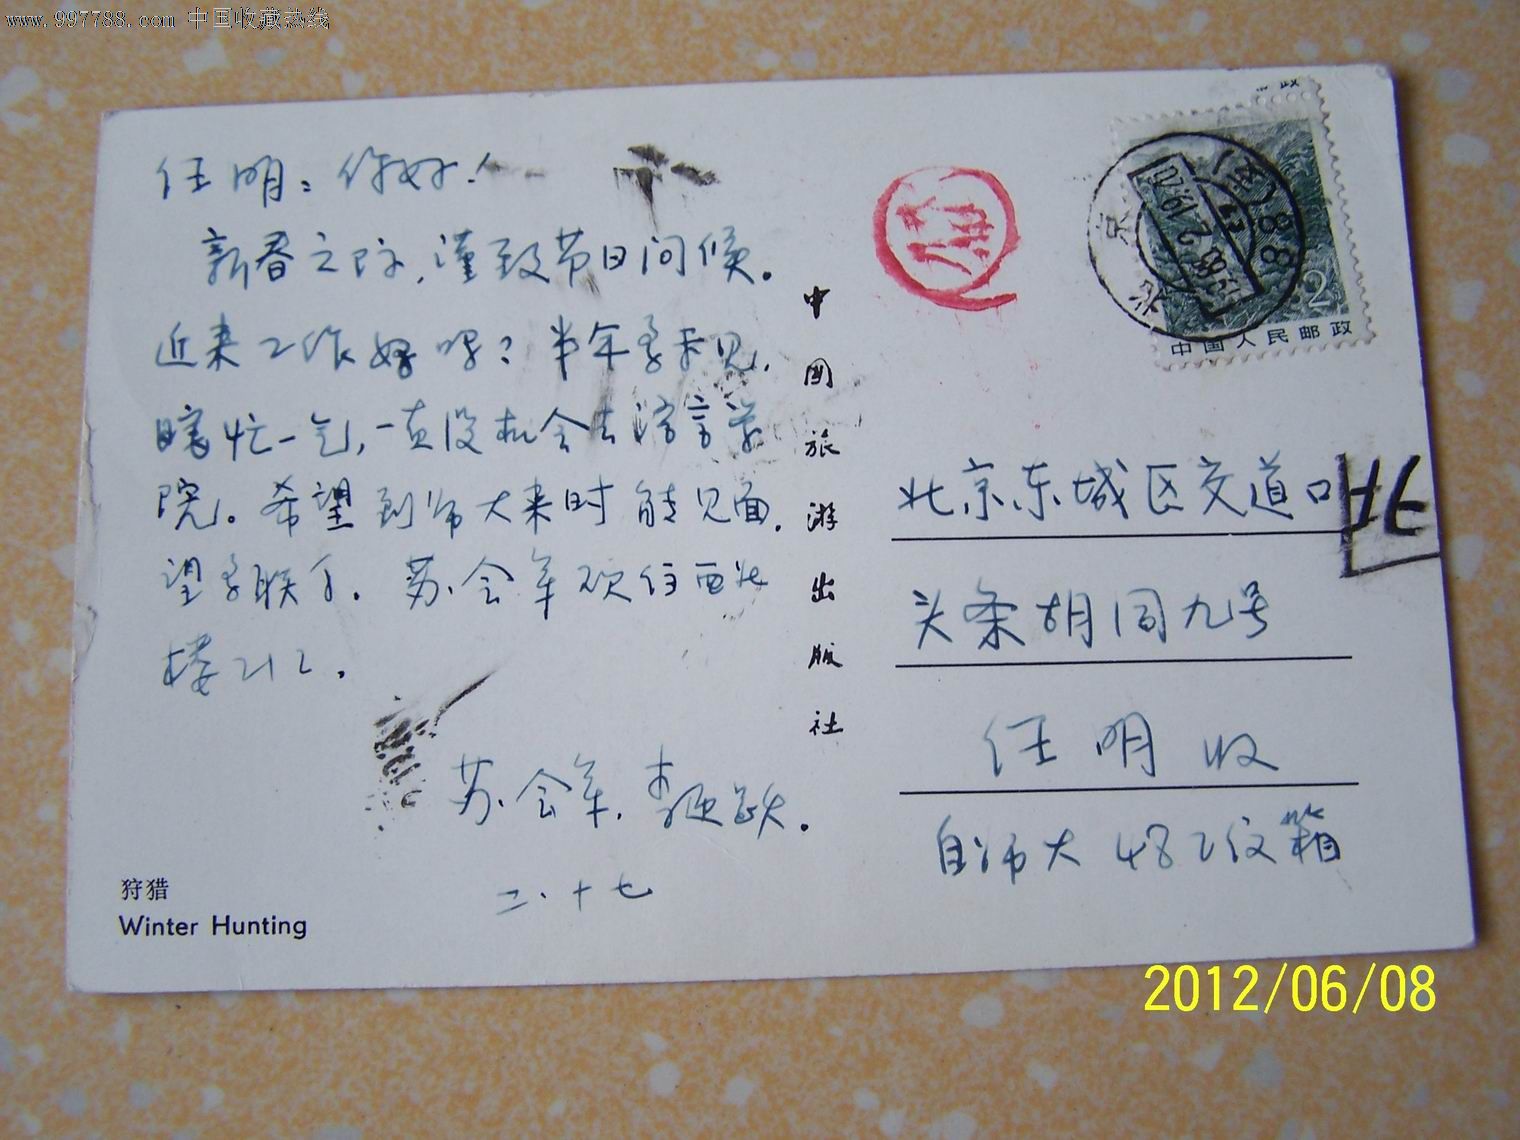 www.997788.com 中国收藏热线
任明：你好！
新春之际，谨致节日问候。
近来工作好吗？半年多未见，
瞎忙一气，一直没机会去语言学
院。希望到师大来时能见面，
望多联系。苏、会军现住西北
楼212.
苏、会军.
二.十七
狩猎
Winter Hunting
中国旅游出版社
中国人民邮政
2
北京
北京东城区交道口北
头条胡同九号
任明 收
自师大482信箱
2012/06/08